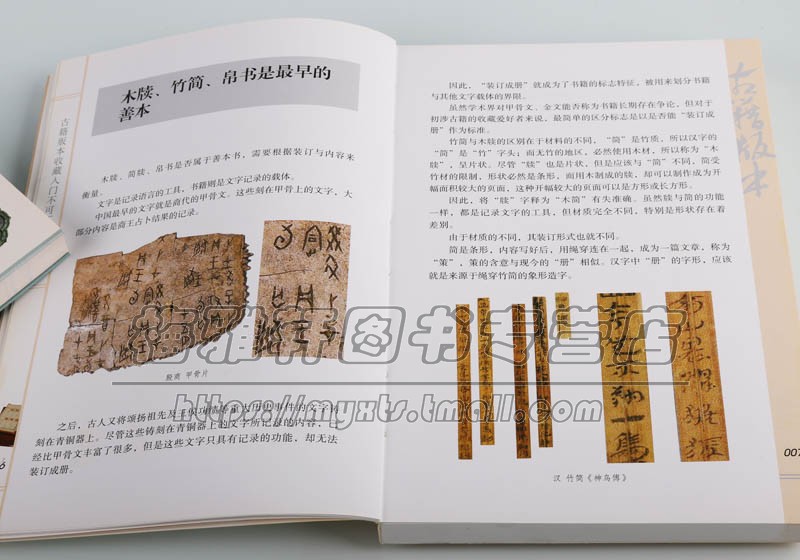 木牍、竹简、帛书是最早的
善本
木牍、简牍、帛书是否属于善本书,需要根据装订与内容来
衡量。
文字是记录语言的工具,书籍则是文字记录的载体。
中国最早的文字就是商代的甲骨文。这些刻在甲骨上的文字,大
部分内容是商王占卜结果的记录。
殷商 甲骨片
之后,古人又将颂扬祖先及王侯功绩等重大历史事件的文字铸
刻在青铜器上。尽管这些铸刻在青铜器上的文字所记录的内容,已
经比甲骨文丰富了很多,但是这些文字只具有记录的功能,却无法
装订成册。
古籍版本收藏入门不可不
6
因此,“装订成册”就成为了书籍的标志特征,被用来划分书籍
与其他文字载体的界限。
虽然学术界对甲骨文、金文能否称为书籍长期存在争论,但对于
初涉古籍的收藏爱好者来说,最简单的区分标志是以是否能“装订成
册”作为标准。
竹简与木牍的区别在于材料的不同,“简”是竹质,所以汉字的
“简”是“竹”字头;而无竹的地区,必然使用木材,所以称为“木
牍”,呈片状。尽管“牍”也是片状,但是应该与“简”不同,简受
竹材的限制,形状必然是条形,而用木制成的牍,却可以制作成为开
幅面积较大的页面,这种开幅较大的页面可以是方形或长方形。
因此,将“牍”字释为“木简”有失准确。虽然牍与简的功能
一样,都是记录文字的工具,但材质完全不同,特别是形状存在着
差别。
由于材质的不同,其装订形式也就不同。
简是条形,内容写好后,用绳穿连在一起,成为一篇文章,称为
“策”,策的含意与现今的“册”相似。汉字中“册”的字形,应该
就是来源于绳穿竹简的象形造字。
汉 竹简《神乌傅》
古籍版本
007
梅雅轩图书专营店
https://myxts.tmall.com